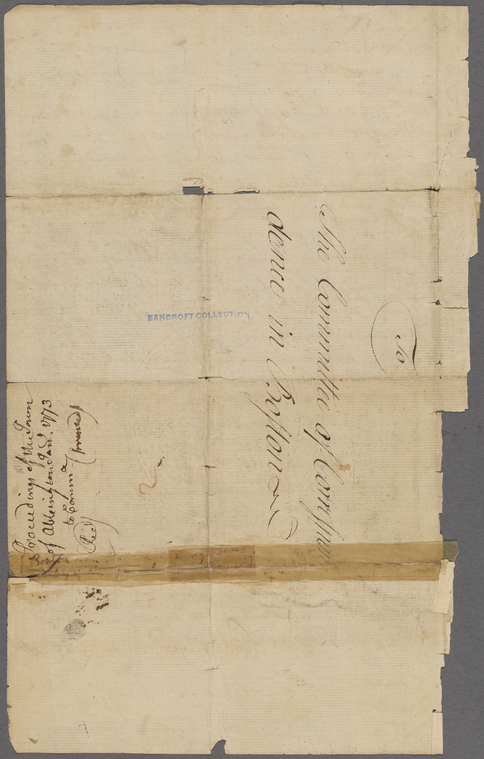 To
The Committe of Correspon
dence in Boston
BANCROFT COLLECTION
Proceedings of the Town
of Abbington Jan. 1773
to Comm.
2